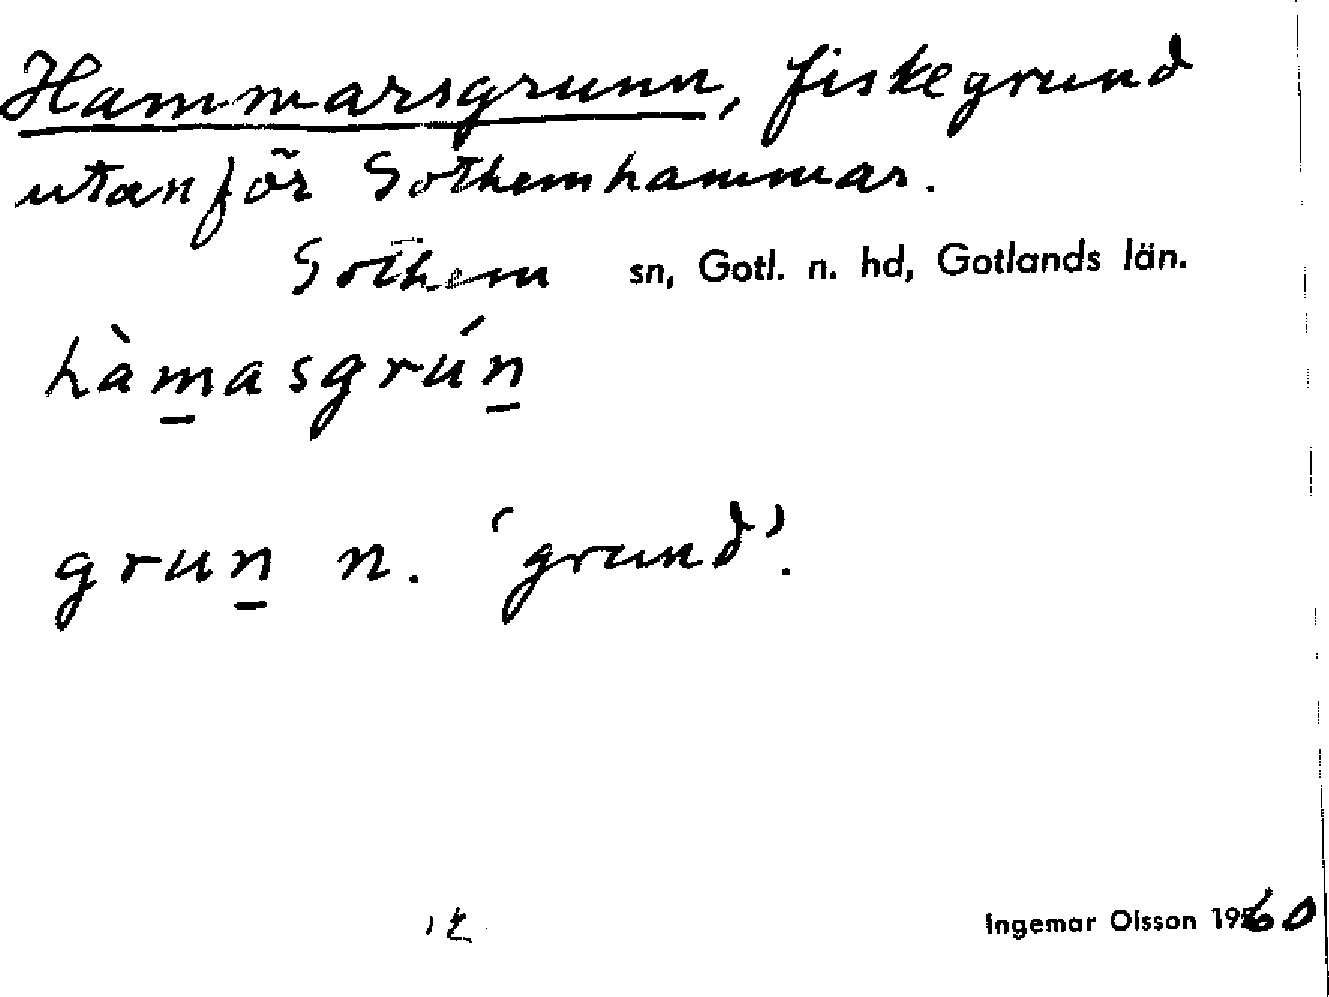 Hammarsgrunn, fiskegrund
utanför Gothemhammar.
Gothem sn, Gotl. n. hd, Gotlands län.
hàm̲asgrún̲
grun̲ n. 'grund'.
Ingemar Olsson 1960